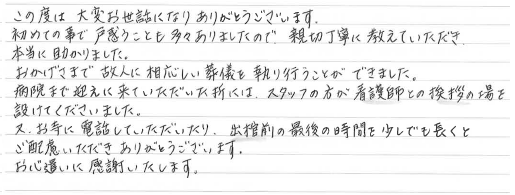 この度は大変お世話になりありがとうございます。
初めての事で戸惑うことも多々ありましたので、親切丁寧に教えていただき
本当に助かりました。
おかげさまで故人に相応しい葬儀を執り行うことができました。
病院まで迎えに来ていただいた折には、スタッフの方が看護師との挨拶の場を
設けてくださいました。
又、お寺に電話していただいたり、出棺前の最後の時間を少しでも長くと
ご配慮いただきありがとうございます。
お心遣いに感謝いたします。